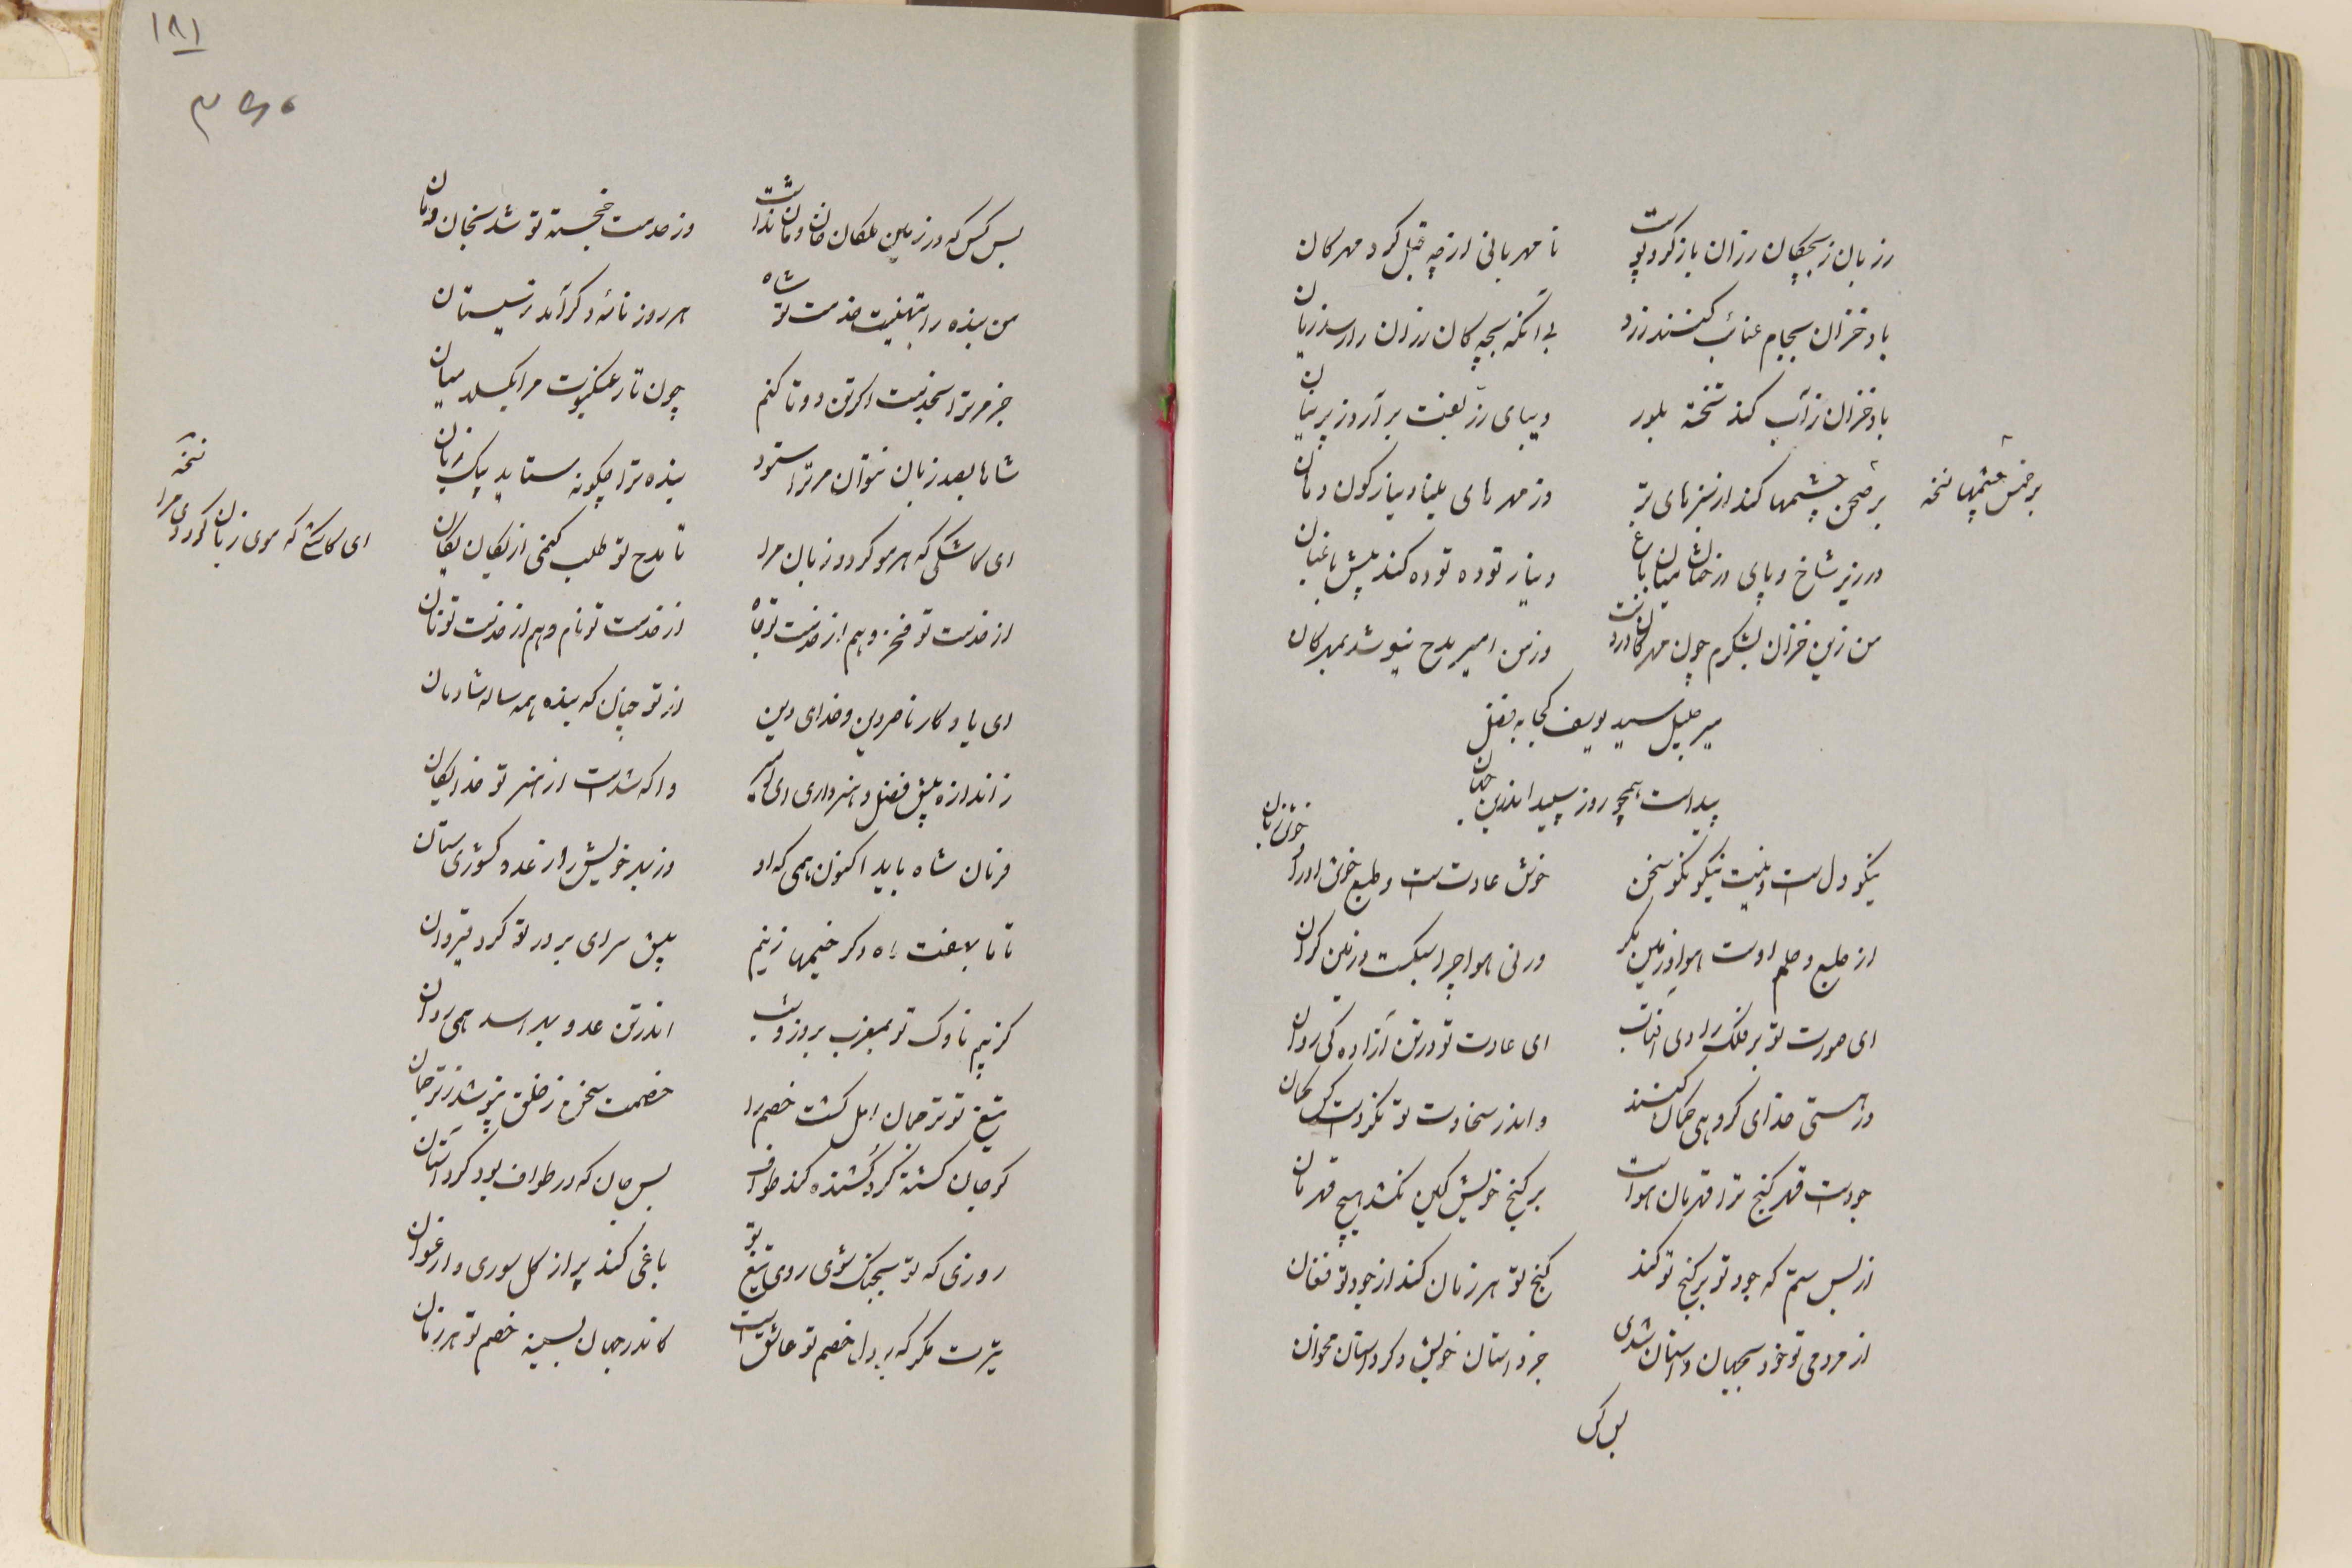 رزبان ز بچگان رزان باز کرد پوست
نامهربانی از چه قبل کرد مهرگان
باد خزان بجام عنائب کنند رزد
بی آنکه بچه گان رزان را رسد زیان
باد خزان ز آب کند تخته بلور
دیبای رز بعنت برآرد ز پرنیان
بر صحن چشمها کند از سبزهای تر
وز مهرهای مینا دینارگون دهان
نسخه
در زیر شاخ و پای درختان میان باغ
دینار توده توده کند پیش باغبان
من زین خزان بشکرم چون مهرگان درست
وز من امیر مدح نیوشد بمهرگان
میر جلیل سید یوسف کجا به فضل
پیداست همچو روز سپید اندرین جهان
خوش زبان
نیکو دل است و نیت نیکو نکو سخن
خوش عادت است و طبع خوش او را
از طبع و حلم اوست هوا و زمین مگر
ورنی هوا چرا سبکست و زمین گران
ای صورت تو بر فلک رادی آفتاب
ای عادت تو در تن آزاده گی روان
در هستی خدای گروهی گمان کنند
و اندر سخاوت تو نکردست کس گمان
جودت قهر گنج ترا قهرمان هواست
بر گنج خویش کس نکند هیچ قهرمان
از بس ستم که جود تو بر گنج تو کند
گنج تو هر زمان کند از جود تو فغان
از مردمی تو خود بجهان داستان شدی
جز داستان خویش دگر داستان مخوان
بس کس
۱۸۱
بس کس که در زمین ملکان خان و مان نداشت
وز خدمت خجسته تو شد بخان و مان
من بنده را بتهنیت خدمت تو شاه
هر روز نامه دگر آمد ز سیستان
جز مر ترا بخدمت اگر تن دو تا کنم
چون تار عنکبوت مرا بگسلد میان
شاها بصد زبان نتوان مر ترا ستود
بنده ترا چگونه ستاید بیک زبان
ای کاشکی که هر مو گردد زبان مرا
تا مدح تو طلب کنمی از یگان یگان
نسخه
ای کاشکی که موی زبان گرددی مرا
از خدمت تو فخر و هم از خدمت تو جاه
از خدمت تو نام و هم از خدمت تو نان
ای یادگار ناصر دین و خدای دین
از تو چنان که بنده همه ساله شادمان
ز اندازه بیش فضل و هنر داری ای
و آگه شدست از هنر تو خدایگان
فرمان شاه باید اکنون همی که او
وز بهر خویش را ز عدو کشوری ستان
تا ما بهفت راه دگر خیمها زنیم
پیش سرای بر در تو گرد قیروان
کز بیم ناوک تو بمغرب بروز و شب
اندر تن عدو بهراسد همی روان
تیغ تو ترجمان اجل گشت خصم را
خصمت سخن ز خلق نیوشد ز ترجمان
گر جان کشته گرد کشنده کند طواف
بس جان که در طواف بود گرد آستان
روزی که تو بجنگ شوی روی تیغ تو
باغی کند پر از گل سوری و ارغوان
تیرت مگر که بر دل خصم تو عاشق است
کاندر جهان بسینه خصم تو هر زمان